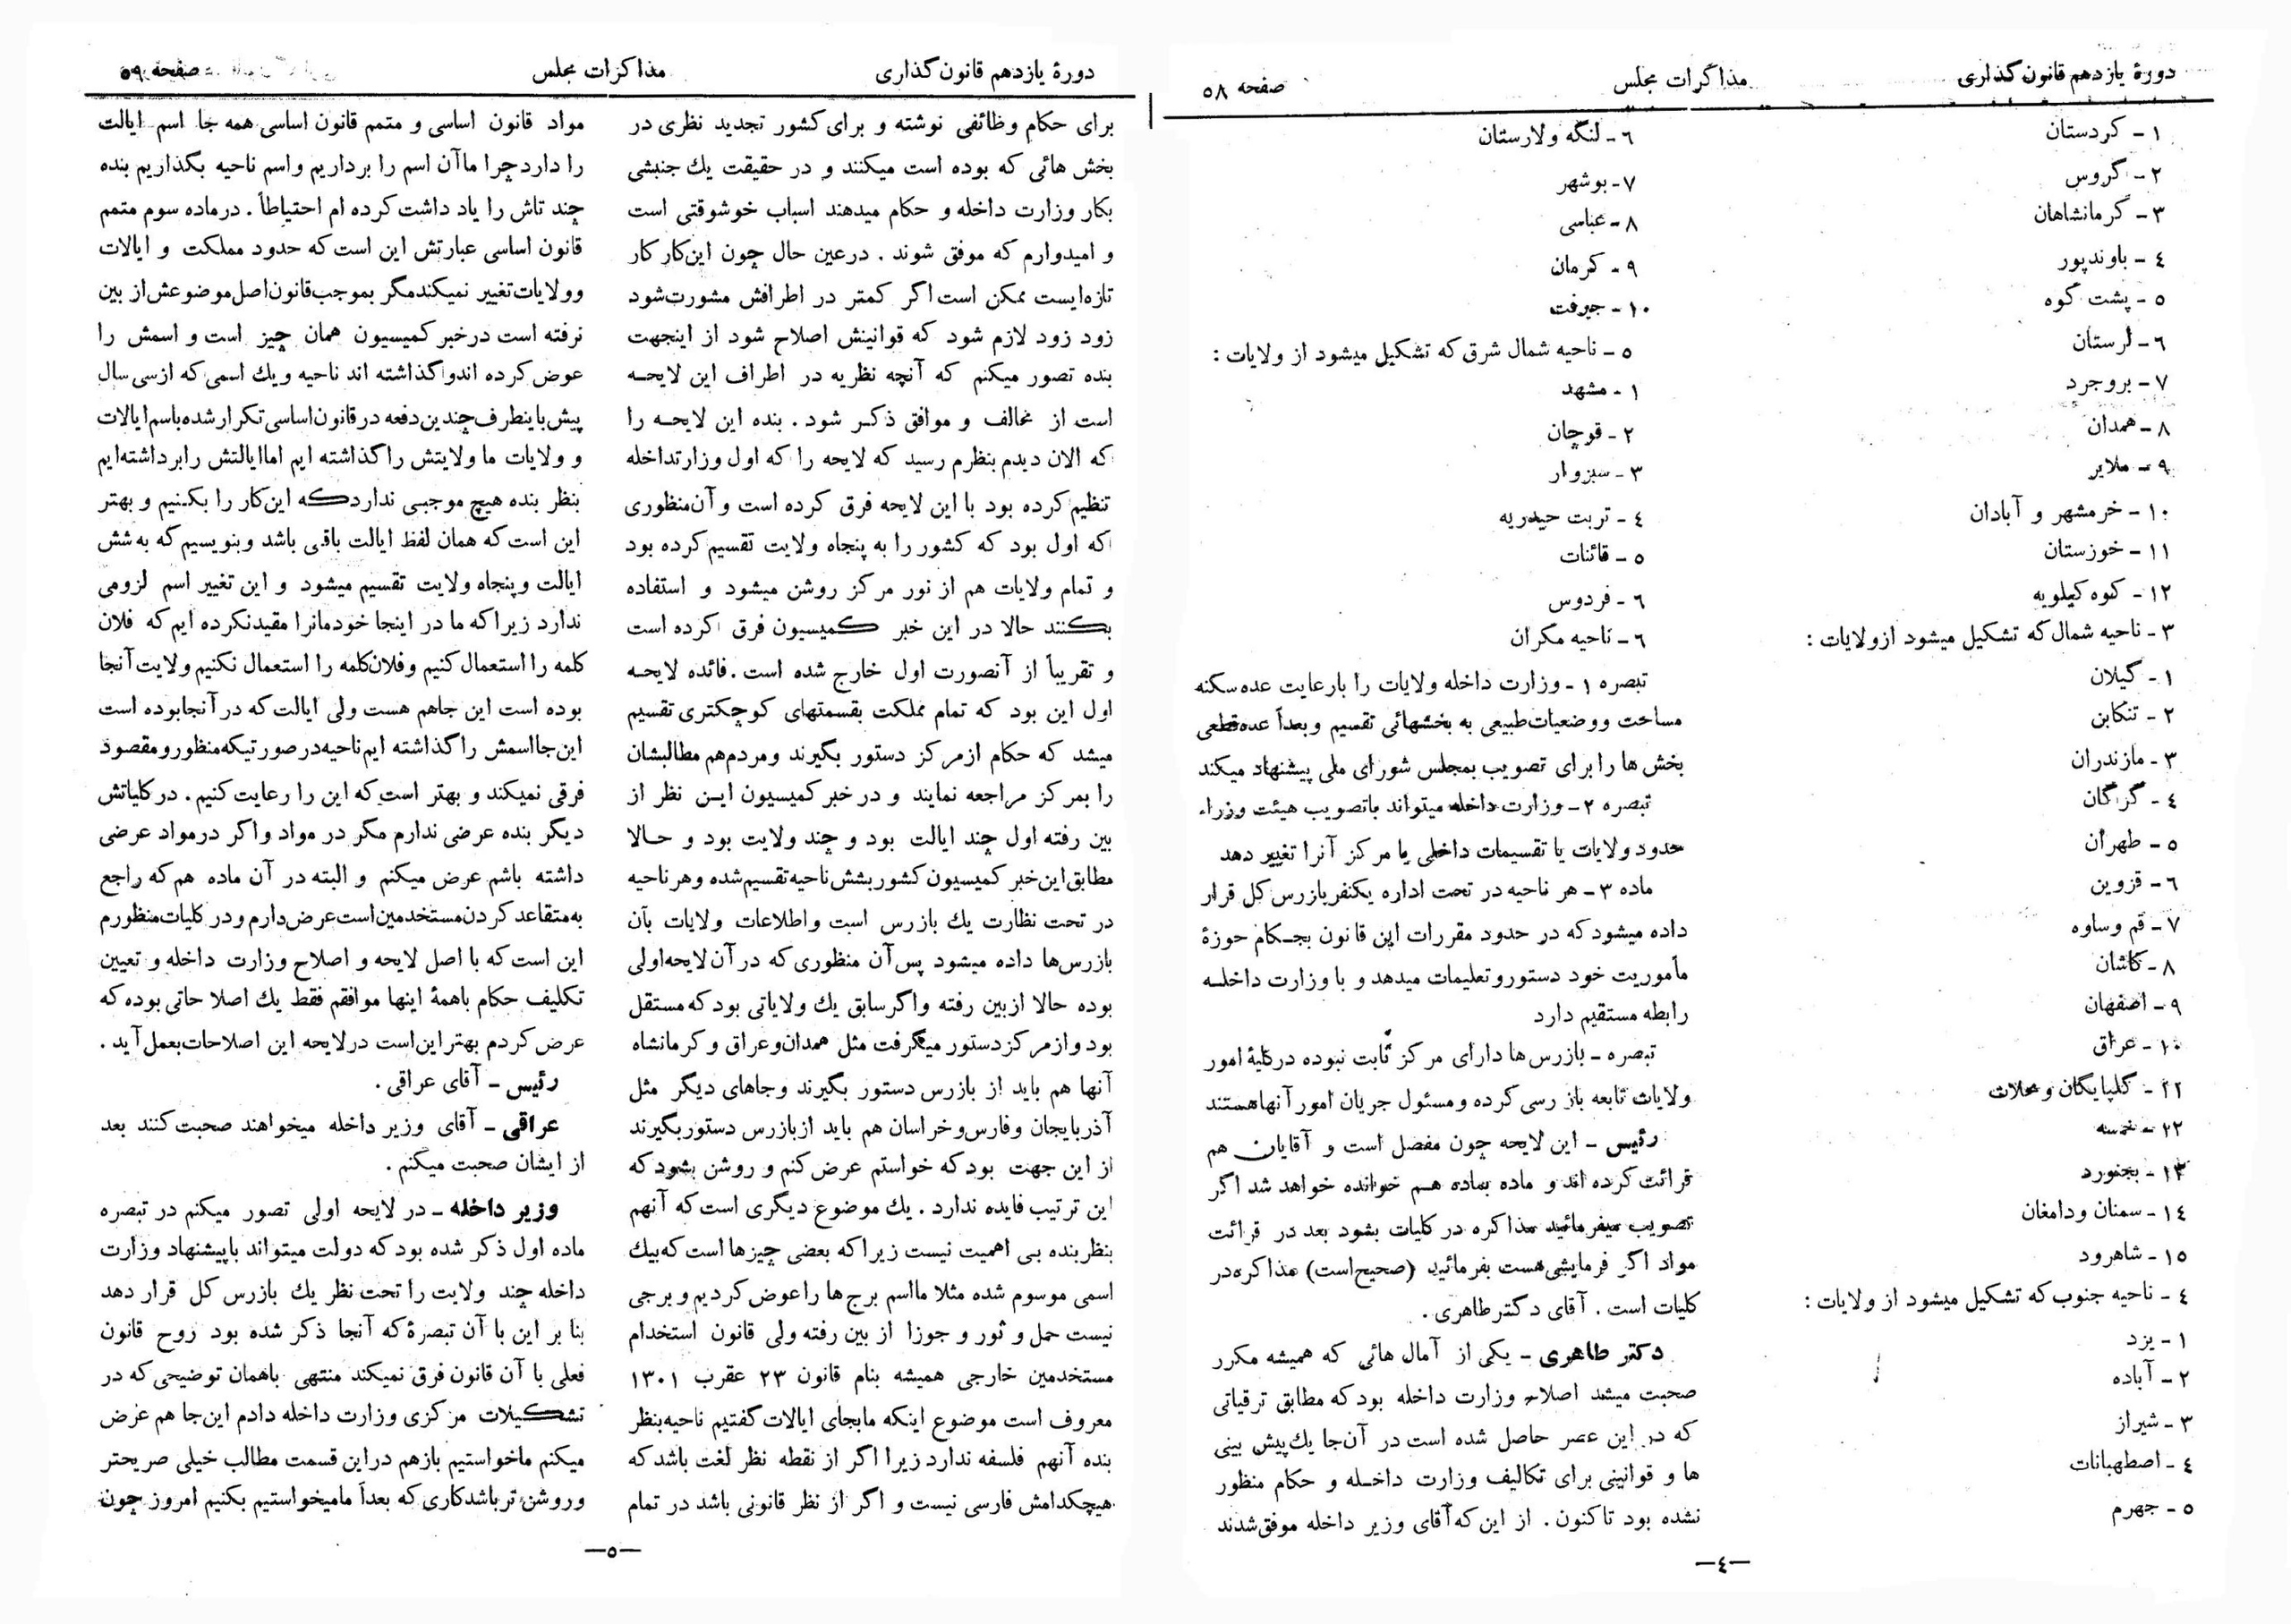 دورهٔ یازدهم قانون‌گذاری
مذاکرات مجلس
صفحه ٥٨
١ - کردستان
٢ - گروس
٣ - کرمانشاهان
٤ - باوندپور
٥ - پشت کوه
٦ - لرستان
٧ - بروجرد
٨ - همدان
٩ - ملایر
١٠ - خرمشهر و آبادان
١١ - خوزستان
١٢ - کوه کیلویه
٣ - ناحیه شمال که تشکیل میشود از ولایات :
١ - گیلان
٢ - تنکابن
٣ - مازندران
٤ - گرگان
٥ - طهران
٦ - قزوین
٧ - قم و ساوه
٨ - کاشان
٩ - اصفهان
١٠ - عراق
١١ - گلپایگان و محلات
١٢ - خمسه
١٣ - بجنورد
١٤ - سمنان و دامغان
١٥ - شاهرود
٤ - ناحیه جنوب که تشکیل میشود از ولایات :
١ - یزد
٢ - آباده
٣ - شیراز
٤ - اصطهبانات
٥ - جهرم
٦ - لنگه ولارستان
٧ - بوشهر
٨ - عباسی
٩ - کرمان
١٠ - جیرفت
٥ - ناحیه شمال شرق که تشکیل میشود از ولایات :
١ - مشهد
٢ - قوچان
٣ - سبزوار
٤ - تربت حیدریه
٥ - قائنات
٦ - فردوس
٦ - ناحیه مکران
تبصره ١ - وزارت داخله ولایات را بارعایت عده سکنه
مساحت ووضعیات طبیعی به بخشهائی تقسیم وبعداً عده قطعی
بخش ها را برای تصویب بمجلس شورای ملی پیشنهاد میکند
تبصره ٢ - وزارت داخله میتواند باتصویب هیئت وزراء
حدود ولایات یا تقسیمات داخلی یا مرکز آنرا تغییر دهد
ماده ٣ - هر ناحیه در تحت اداره یکنفر بازرس کل قرار
داده میشود که در حدود مقررات این قانون بحکام حوزهٔ
مأموریت خود دستور و تعلیمات میدهد و با وزارت داخله
رابطه مستقیم دارد
تبصره - بازرس ها دارای مرکز ثابت نبوده درکلیهٔ امور
ولایات تابعه بازرسی کرده ومسئول جریان امور آنها هستند
رئیس - این لایحه چون مفصل است و آقایان هم
قرائت کرده اند و ماده بماده هم خوانده خواهد شد اگر
تصویب میفرمائید مذاکره در کلیات بشود بعد در قرائت
مواد اگر فرمایشی هست بفرمائید (صحیح است) مذاکره در
کلیات است . آقای دکتر طاهری .
دکتر طاهری - یکی از آمال هائی که همیشه مکرر
صحبت میشد اصلاح وزارت داخله بود که مطابق ترقیاتی
که در این عصر حاصل شده است در آن‌جا یك پیش بینی
ها و قوانینی برای تکالیف وزارت داخله و حکام منظور
نشده بود تاکنون . از این که آقای وزیر داخله موفق شدند
—٤—
دورهٔ یازدهم قانون‌گذاری
مذاکرات مجلس
صفحه ٥٩
برای حکام وظائفی نوشته و برای کشور تجدید نظری در
بخش هائی که بوده است میکنند و در حقیقت یك جنبشی
بکار وزارت داخله و حکام میدهند اسباب خوشوقتی است
و امیدوارم که موفق شوند . درعین حال چون این کار کار
تازه‌ایست ممکن است اگر کمتر در اطرافش مشورت شود
زود زود لازم شود که قوانینش اصلاح شود از اینجهت
بنده تصور میکنم که آنچه نظریه در اطراف این لایحه
است از مخالف و موافق ذکر شود . بنده این لایحه را
که الان دیدم بنظرم رسید که لایحه را که اول وزارتداخله
تنظیم کرده بود با این لایحه فرق کرده است و آن منظوری
که اول بود که کشور را به پنجاه ولایت تقسیم کرده بود
و تمام ولایات هم از نور مرکز روشن میشود و استفاده
بکنند حالا در این خبر کمیسیون فرق کرده است
و تقریباً از آنصورت اول خارج شده است . فائده لایحه
اول این بود که تمام مملکت بقسمتهای کوچکتری تقسیم
میشد که حکام از مرکز دستور بگیرند ومردم هم مطالبشان
را بمرکز مراجعه نمایند و در خبر کمیسیون این نظر از
بین رفته اول چند ایالت بود و چند ولایت بود و حالا
مطابق این خبر کمیسیون کشور بشش ناحیه تقسیم شده وهر ناحیه
در تحت نظارت یك بازرس است و اطلاعات ولایات بآن
بازرس‌ها داده میشود پس آن منظوری که در آن لایحه اولی
بوده حالا از بین رفته واگر سابق یك ولایاتی بود که مستقل
بود و از مرکز دستور میگرفت مثل همدان و عراق و کرمانشاه
آنها هم باید از بازرس دستور بگیرند و جاهای دیگر مثل
آذربایجان و فارس و خراسان هم باید از بازرس دستور بگیرند
از این جهت بود که خواستم عرض کنم و روشن بشود که
این ترتیب فایده ندارد . یك موضوع دیگری است که آنهم
بنظر بنده بی اهمیت نیست زیرا که بعضی چیزها است که بیك
اسمی موسوم شده مثلا مااسم برج ها را عوض کردیم و برجی
نیست حمل و ثور و جوزا از بین رفته ولی قانون استخدام
مستخدمین خارجی همیشه بنام قانون ٢٣ عقرب ١٣٠١
معروف است موضوع اینکه مابجای ایالات گفتیم ناحیه بنظر
بنده آنهم فلسفه ندارد زیرا اگر از نقطه نظر لغت باشد که
هیچکدامش فارسی نیست و اگر از نظر قانونی باشد در تمام
مواد قانون اساسی و متمم قانون اساسی همه جا اسم ایالت
را دارد چرا ماآن اسم را برداریم واسم ناحیه بگذاریم بنده
چند تاش را یاد داشت کرده ام احتیاطاً . درماده سوم متمم
قانون اساسی عبارتش این است که حدود مملکت و ایالات
وولایات تغییر نمیکند مگر بموجب قانون اصل موضوعش از بین
نرفته است درخبر کمیسیون همان چیز است و اسمش را
عوض کرده اند و گذاشته اند ناحیه و یك اسمی که از سی سال
پیش باینطرف چندین دفعه در قانون اساسی تکرار شده باسم ایالات
و ولایات ما ولایتش را گذاشته ایم اما ایالتش را برداشته ایم
بنظر بنده هیچ موجبی ندارد که این کار را بکنیم و بهتر
این است که همان لفظ ایالت باقی باشد و بنویسیم که به شش
ایالت و پنجاه ولایت تقسیم میشود و این تغییر اسم لزومی
ندارد زیرا که ما در اینجا خودمانرا مقید نکرده ایم که فلان
کلمه را استعمال کنیم و فلان کلمه را استعمال نکنیم ولایت آنجا
بوده است این جاهم هست ولی ایالت که در آنجا بوده است
این جا اسمش را گذاشته ایم ناحیه در صورتیکه منظور و مقصود
فرقی نمیکند و بهتر است که این را رعایت کنیم . در کلیاتش
دیگر بنده عرضی ندارم مگر در مواد واگر درمواد عرضی
داشته باشم عرض میکنم و البته در آن ماده هم که راجع
به متقاعد کردن مستخدمین است عرض دارم و در کلیات منظورم
این است که با اصل لایحه و اصلاح وزارت داخله و تعیین
تکلیف حکام باهمهٔ اینها موافقم فقط یك اصلاحاتی بوده که
عرض کردم بهتر این است در لایحه این اصلاحات بعمل آید .
رئیس - آقای عراقی .
عراقی - آقای وزیر داخله میخواهند صحبت کنند بعد
از ایشان صحبت میکنم .
وزیر داخله - در لایحه اولی تصور میکنم در تبصره
ماده اول ذکر شده بود که دولت میتواند باپیشنهاد وزارت
داخله چند ولایت را تحت نظر یك بازرس کل قرار دهد
بنا بر این با آن تبصرهٔ که آنجا ذکر شده بود روح قانون
فعلی با آن قانون فرق نمیکند منتهی باهمان توضیحی که در
تشکیلات مرکزی وزارت داخله دادم این‌جا هم عرض
میکنم ماخواستیم بازهم در این قسمت مطالب خیلی صریحتر
وروشن تر باشد کاری که بعداً مامیخواستیم بکنیم امروز چون
—٥—